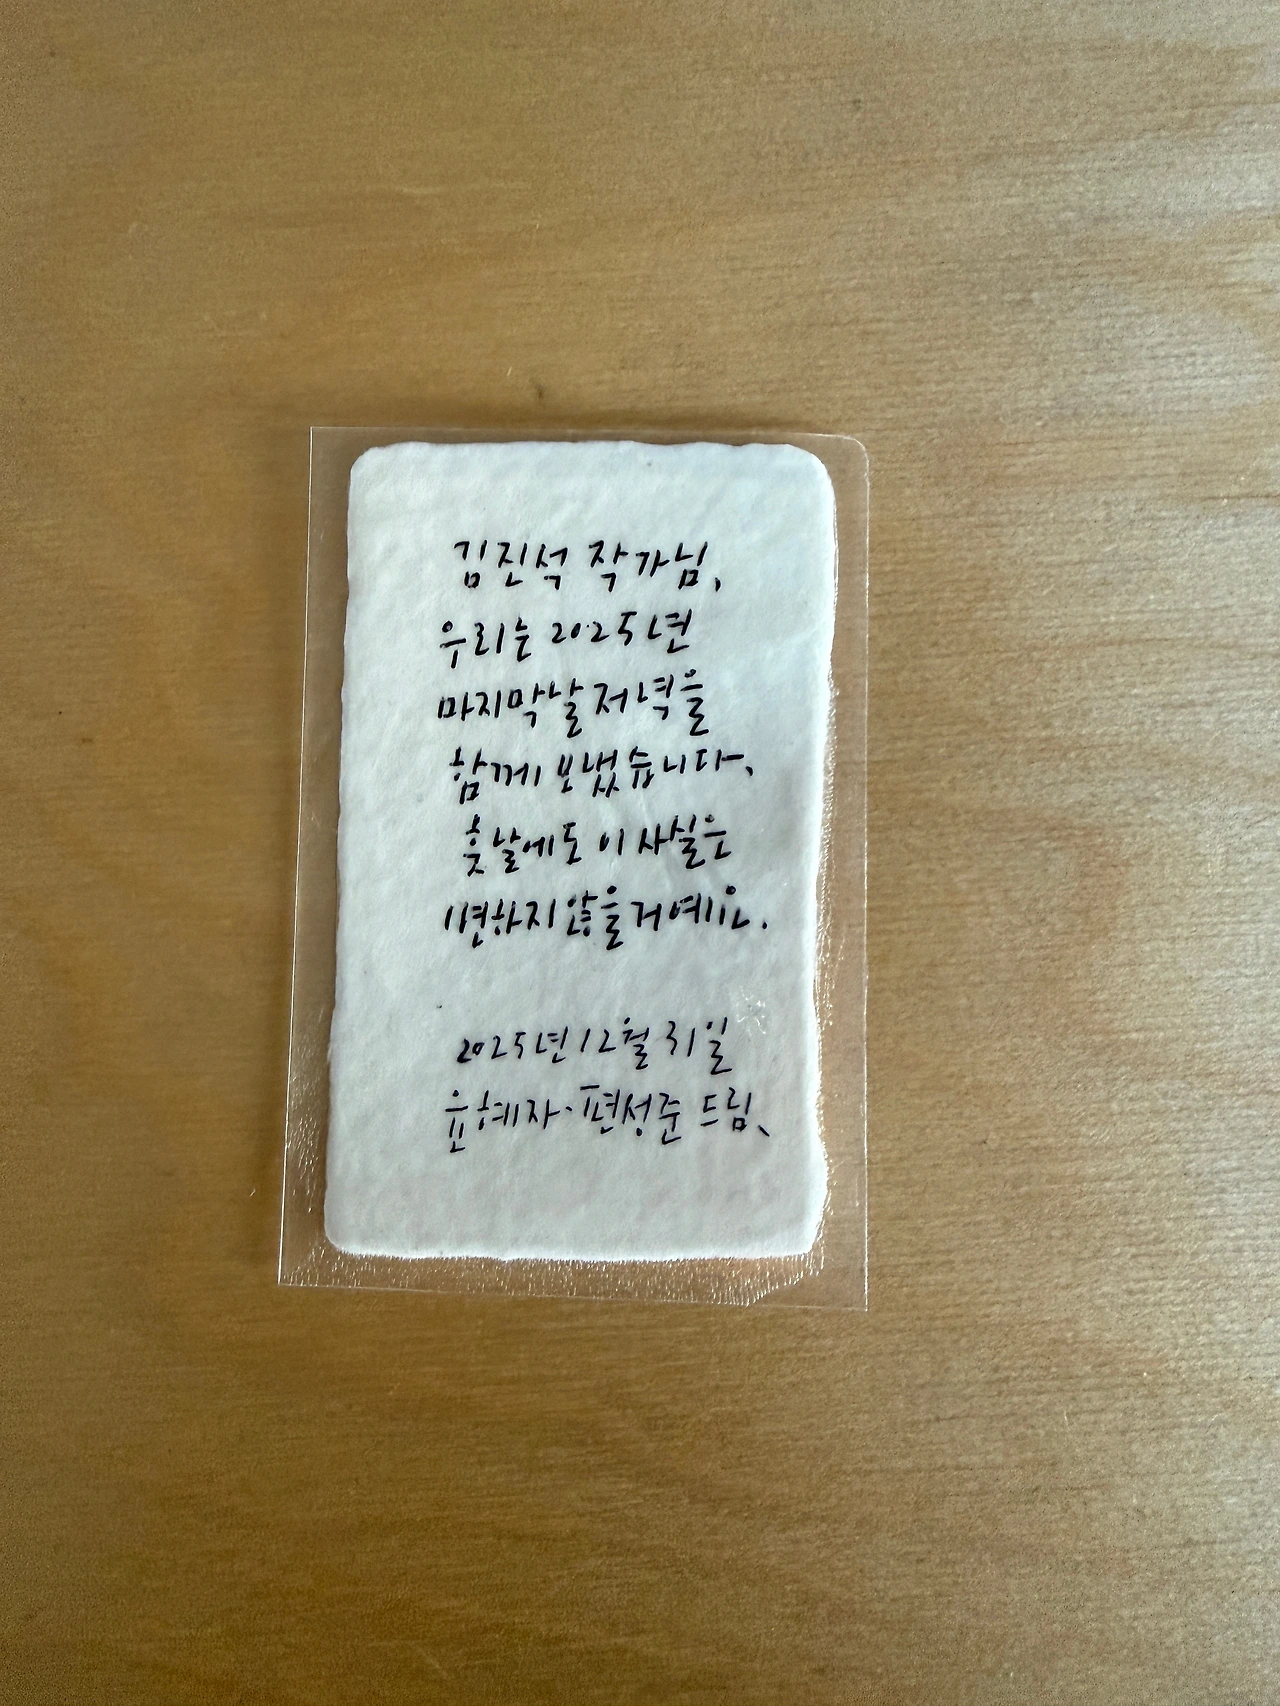 김진석 작가님,
우리는 2025년
마지막날 저녁을
함께 보냈습니다.
훗날에도 이 사실은
변하지 않을거예요.
2025년 12월 31일
윤혜자·편성준 드림.